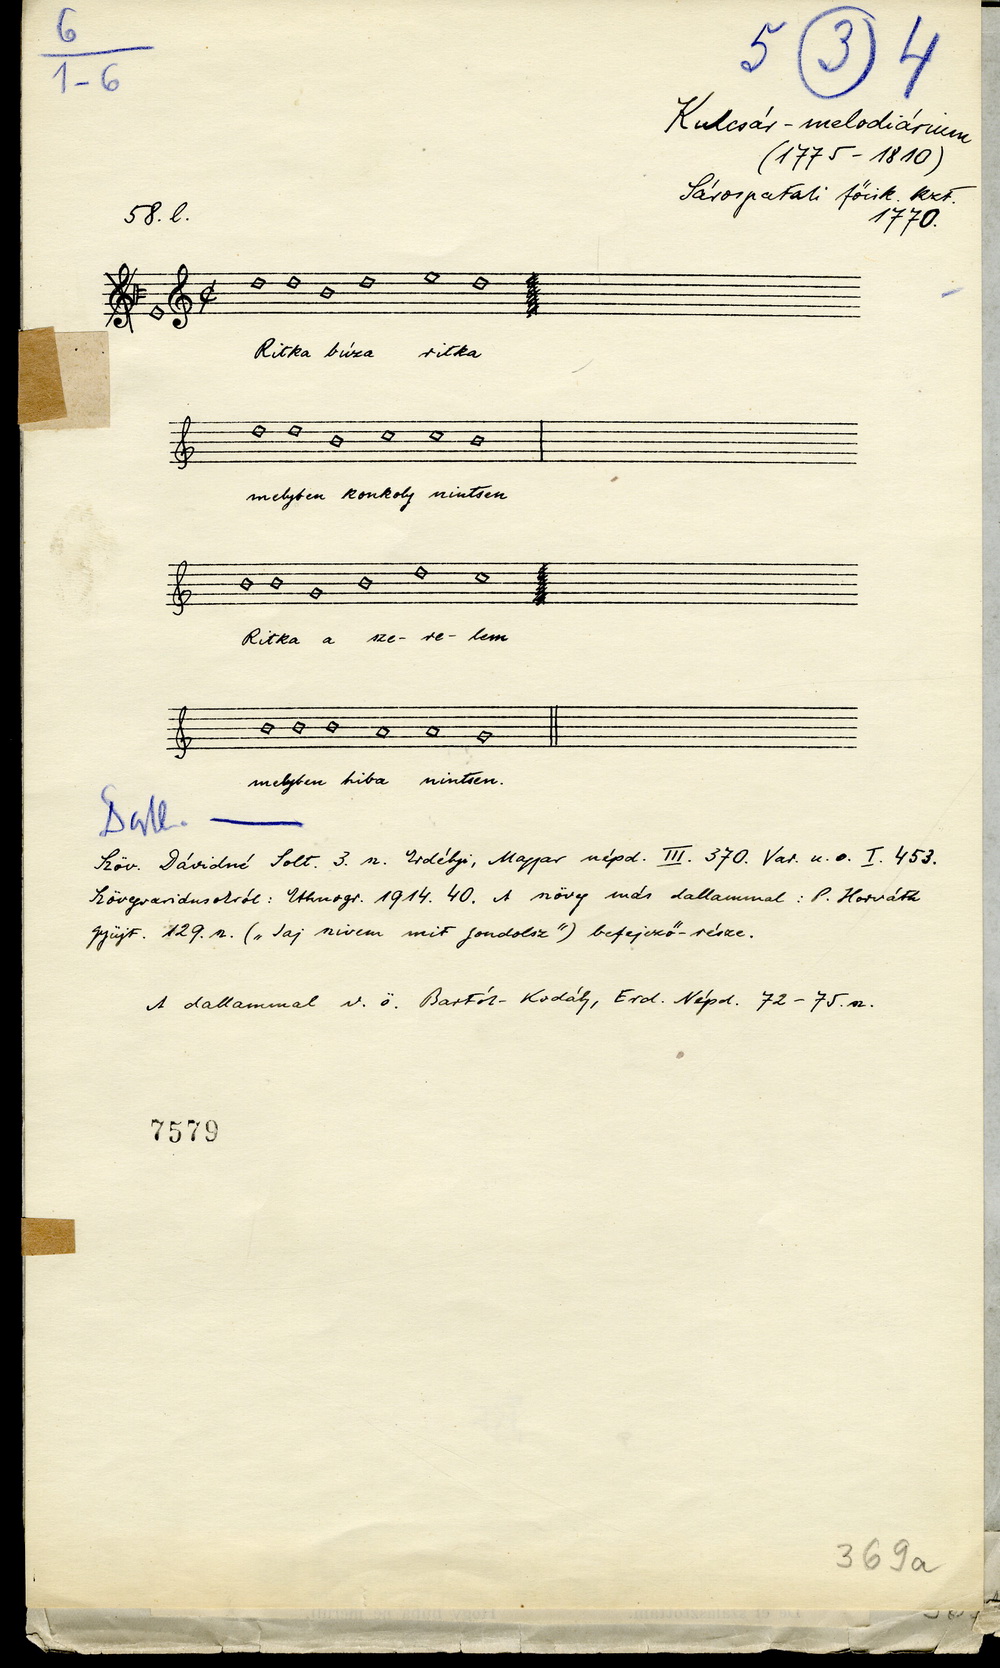 6
1-6
5 3 4
Kulcsár-melodiárium
(1775-1810)
Sárospataki főisk. kzt.
1770.
58. l.
Ritka búza ritka
melyben konkoly nintsen
Ritka a sze- re- lem
melyben hiba nintsen.
Szöv. Dávidné Solt. 3. sz. Erdélyi, Magyar népd. III. 370. Var. u. o. I. 453.
Szövegvariánsokról: Ethnogr. 1914. 40. A szöveg más dallammal: P. Horváth
gyüjt. 129. sz. („Jaj szivem mit gondolsz") befejező-része.
A dallammal v. ö. Bartók-Kodály, Erd. Népd. 72-75. sz.
7579
369a